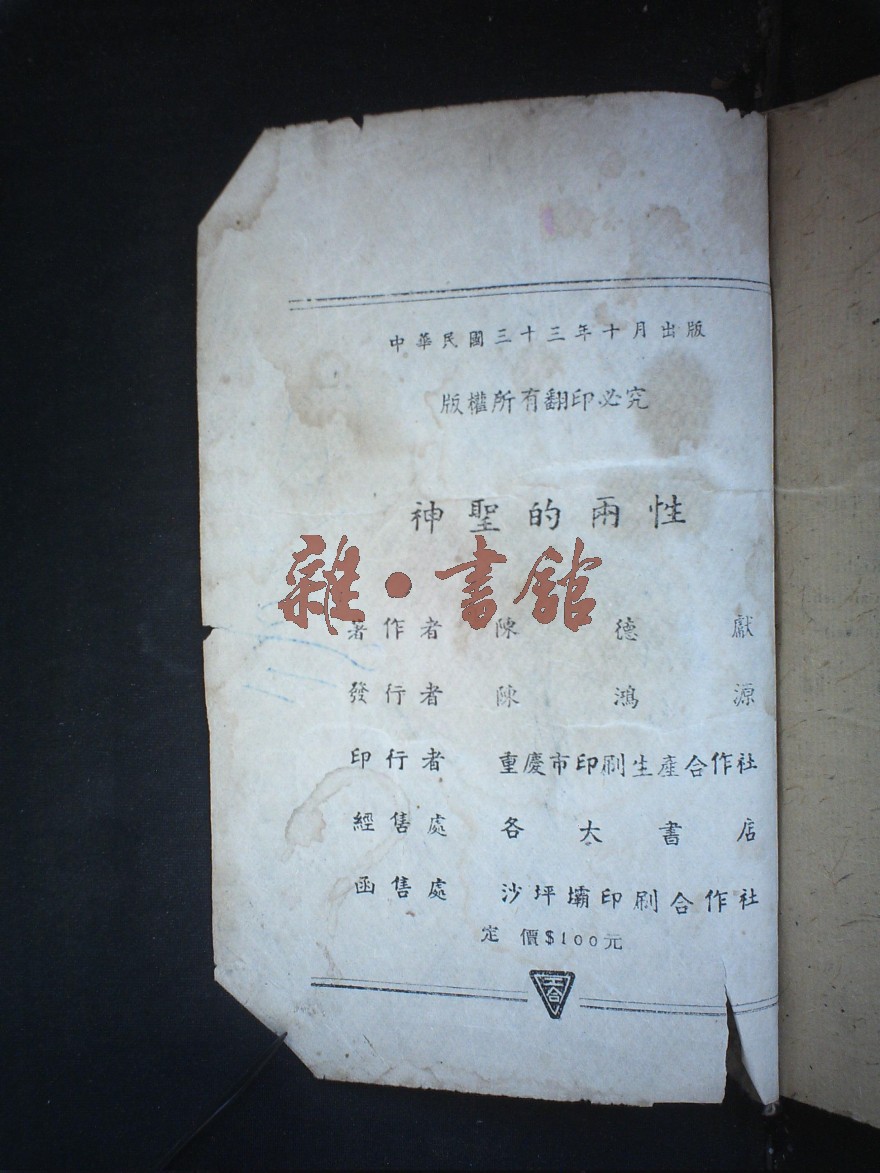 中華民國三十三年十月出版
版權所有翻印必究
神聖的兩性
雜·書館
著作者 陳德獻
發行者 陳鴻源
印行者 重慶市印刷生產合作社
經售處 各大書店
函售處 沙坪壩印刷合作社
定價$100元
工合